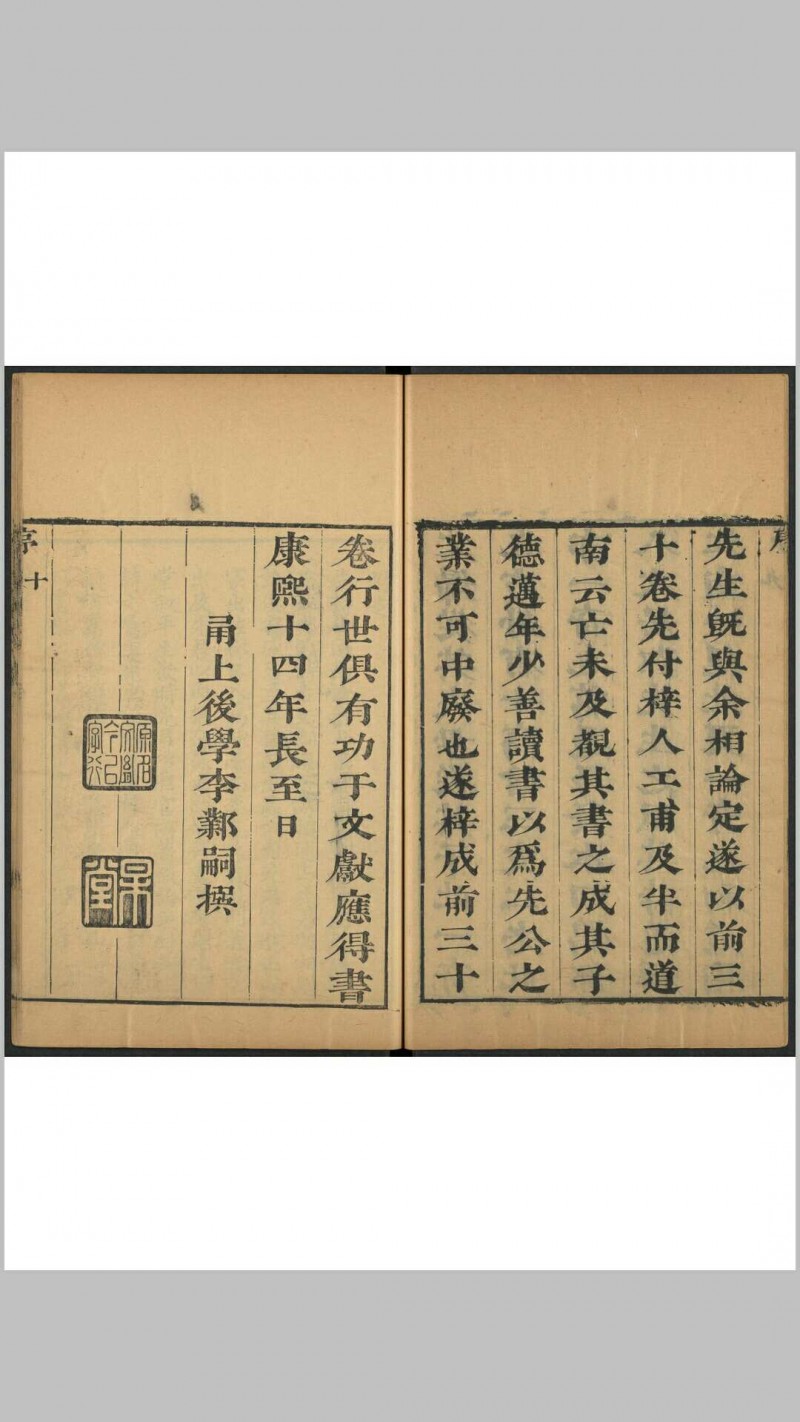 先生旣與余相論定遂以前三
十卷先付梓人工甫及半而道
南云亡未及覩其書之成其子
德邁年少善讀書以爲先公之
業不可中廢也遂梓成前三十
卷行世俱有功于文獻應得書
康熙十四年長至日
甬上後學李鄴嗣撰
原名文縉今名字行
杲堂
序 十